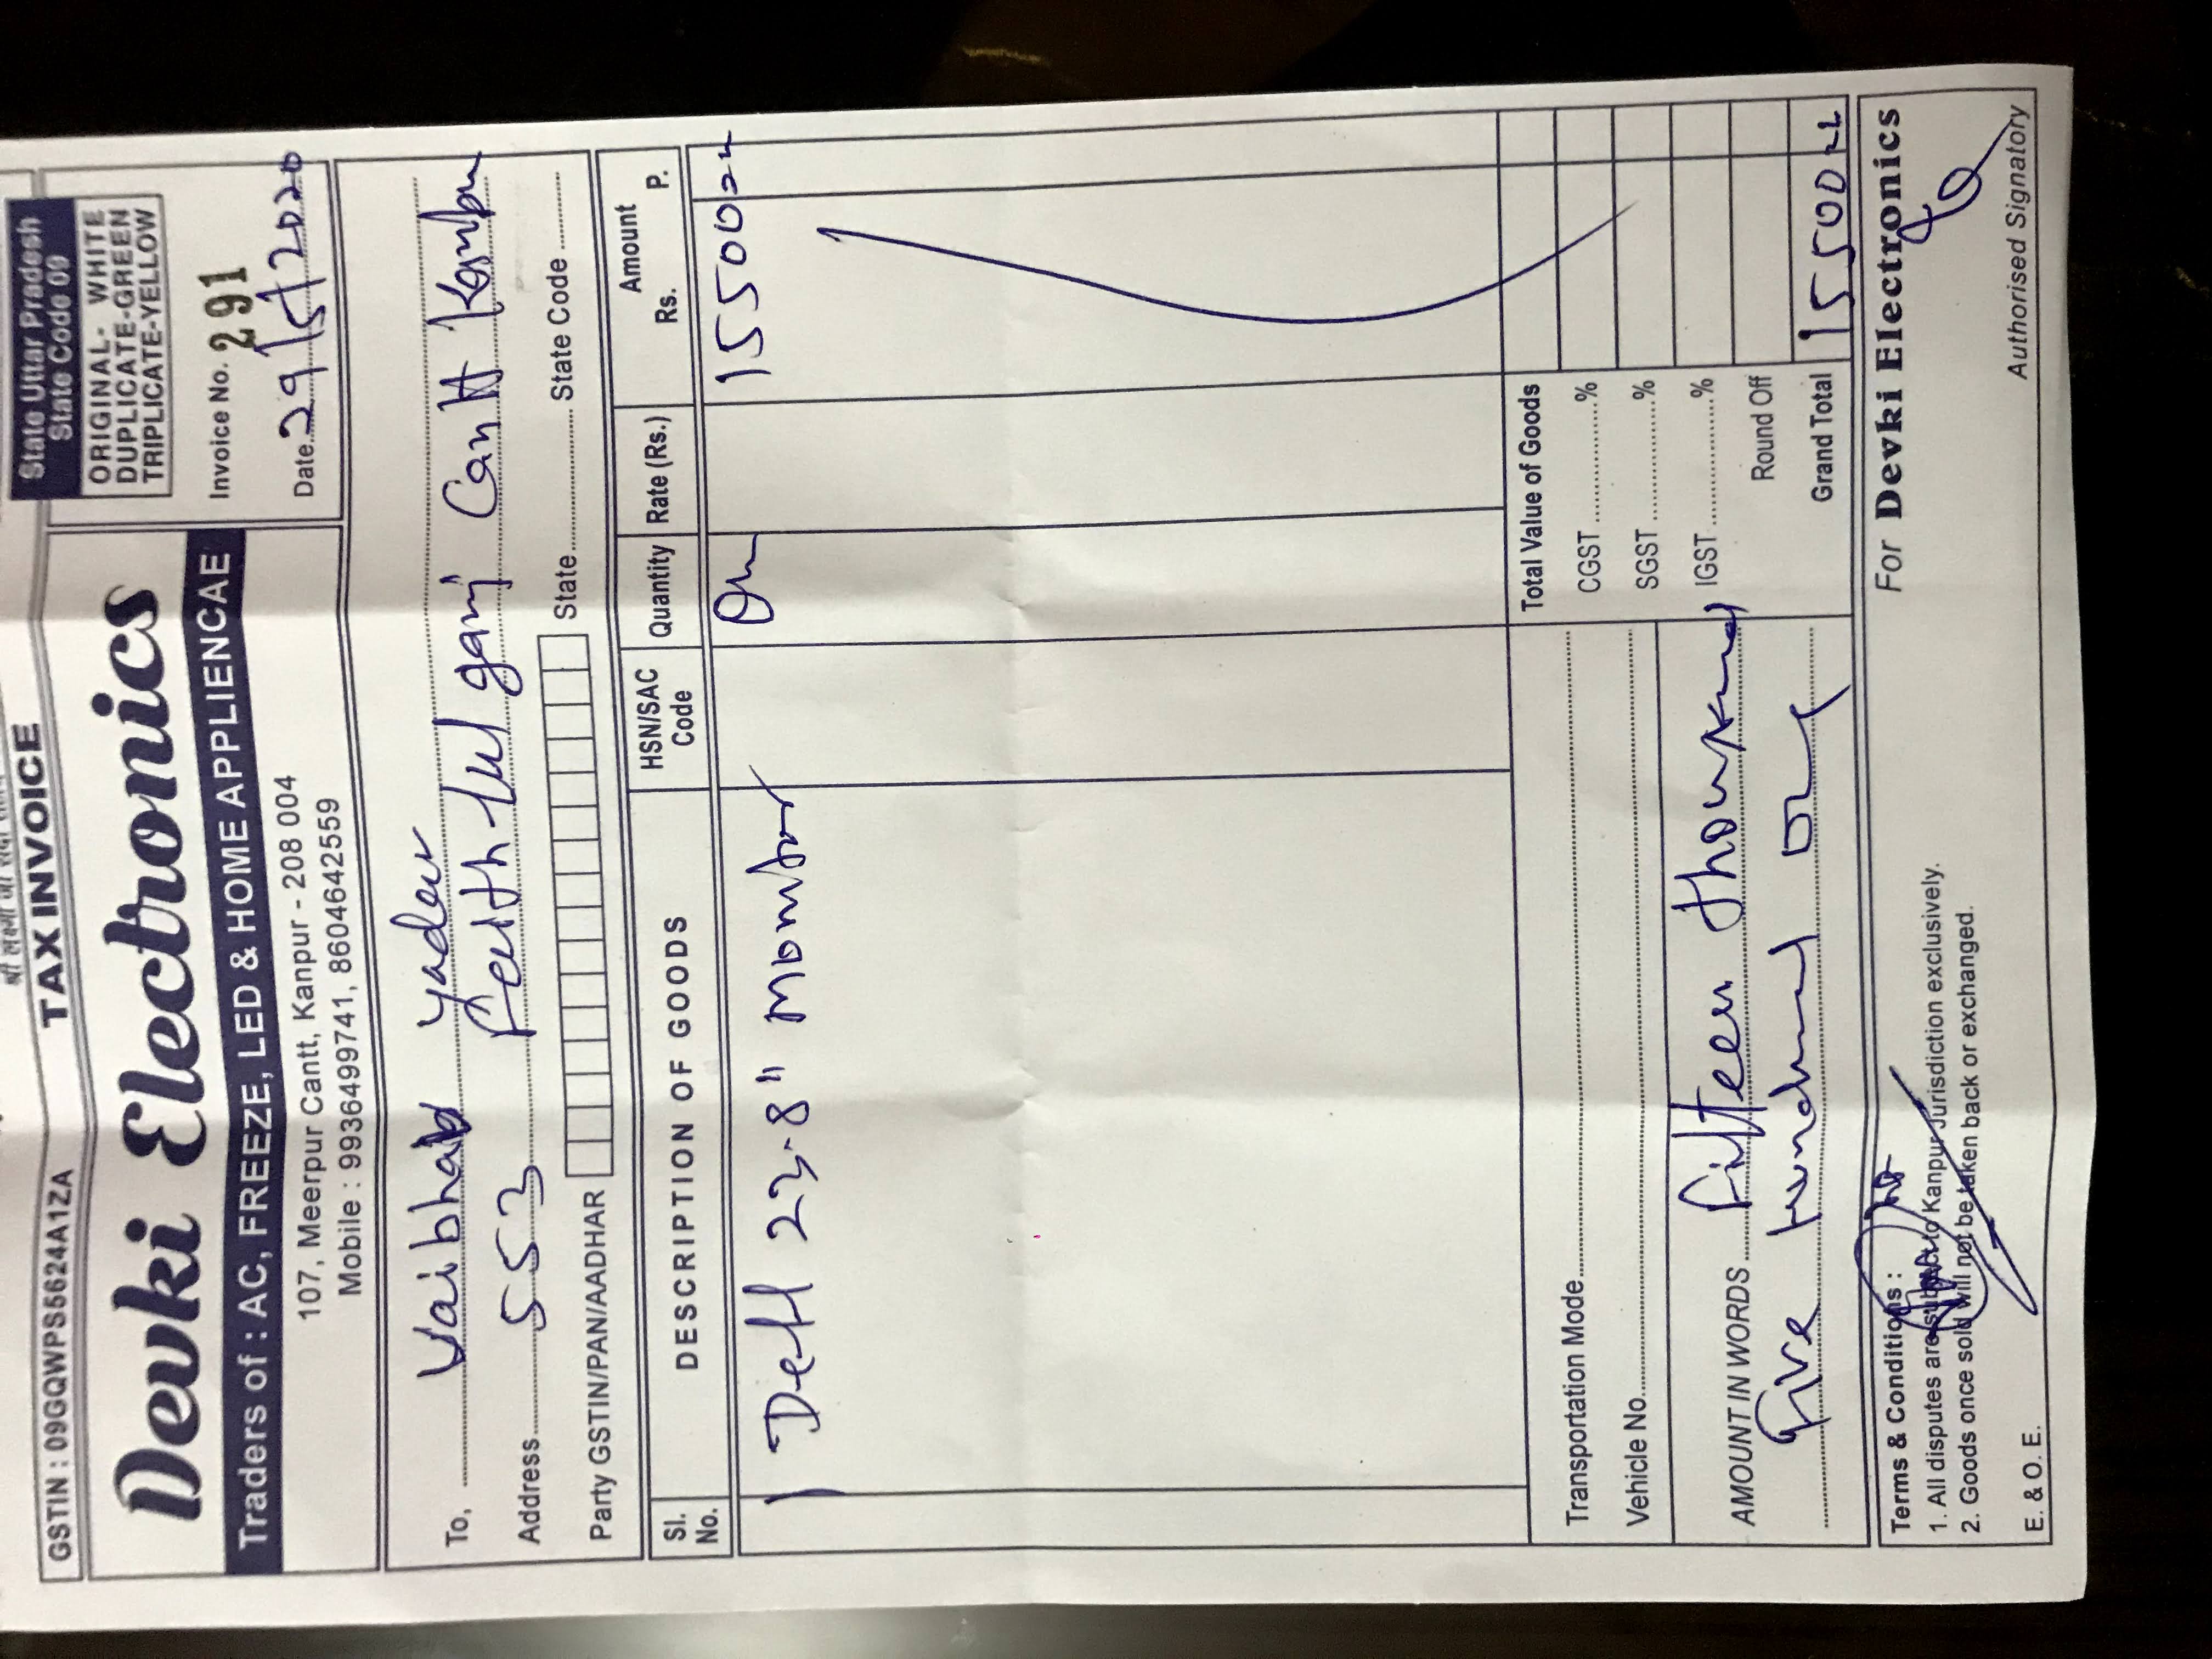 श्री लक्ष्मी जी सदा
GSTIN : 09GQWPS5624A1ZA
TAX INVOICE
State Uttar Pradesh
State Code 09
ORIGINAL- WHITE
DUPLICATE-GREEN
TRIPLICATE-YELLOW
Devki Electronics
Traders of : AC, FREEZE, LED & HOME APPLIENCAE
107, Meerpur Cantt, Kanpur - 208 004
Mobile : 9936499741, 8604642559
Invoice No. 291
Date 29/5/2020
To, Vaibhab yadav
Address 553 Faithfulganj Cantt Kanpur
Party GSTIN/PAN/AADHAR State State Code
Sl. No. DESCRIPTION OF GOODS HSN/SAC Code Quantity Rate (Rs.) Amount Rs. P.
1 Dell 23.8" Monitor 15500
Total Value of Goods
Transportation Mode
CGST %
Vehicle No.
SGST %
IGST %
AMOUNT IN WORDS Fifteen thousand
Five hundred only
Round Off
Grand Total 15500
Terms & Conditions :
1. All disputes are subject to Kanpur Jurisdiction exclusively.
2. Goods once sold will not be taken back or exchanged.
E. & O. E.
For Devki Electronics
Authorised Signatory